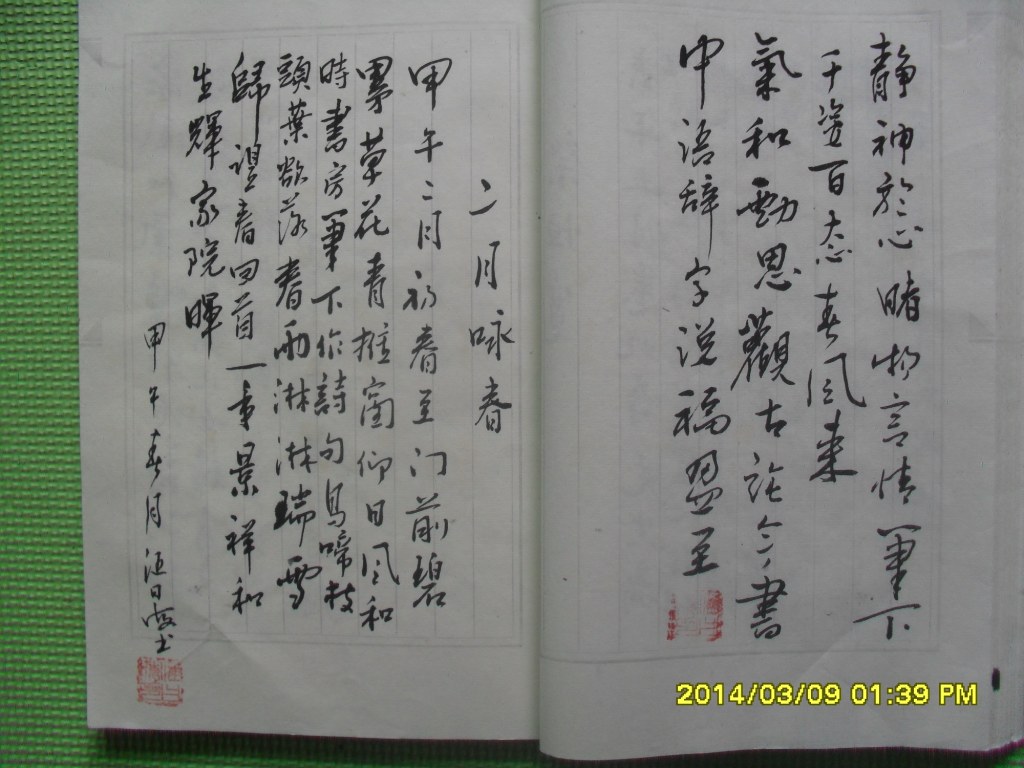 静神於心睹物言情筆下
千姿百态春风来
氣和勁思觀古论今書
中语辞字说福恩至
二月咏春
甲午二月初春至门前碧
草花青推窗仰日风和
時書房筆下作詩句鳥啼枝
頭葉欲落春雨淋淋瑞雪
歸迎春回首一年景祥和
生輝家院暉
甲午春月汪日
2014/03/09 01:39 PM